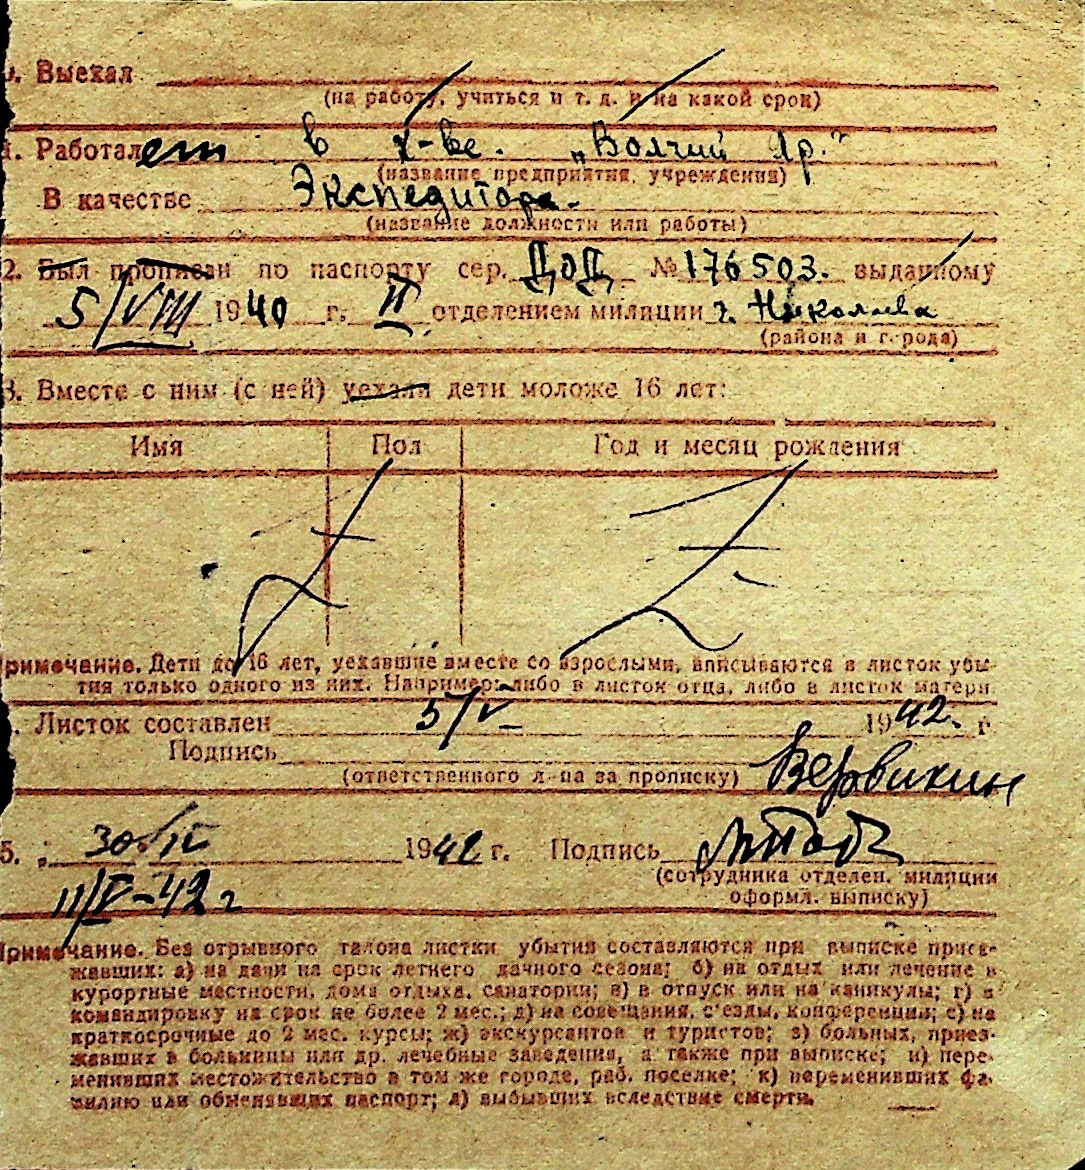 0. Выехал
(на работу, учиться и т. д. и на какой срок)
1. Работает в х-ве. „Волчий Яр."
(название предприятия, учреждения)
В качестве Экспедитора.
(название должности или работы)
2. Был прописан по паспорту сер. ДОД №176503. выданному
5/VIII 1940 г. II отделением милиции г. Николаева
(района и города)
3. Вместе с ним (с ней) уехали дети моложе 16 лет:
Имя Пол Год и месяц рождения
римечание. Дети до 16 лет, уехавшие вместе со взрослыми, вписываются в листок убы-
тия только одного из них. Например: либо в листок отца, либо в листок матери
. Листок составлен 5/V 1942. г.
Подпись Вервикин
(ответственного л-ца за прописку)
5. 30/IV 1942 г. Подпись
(сотрудника отделен. милиции
оформл. выписку)
11/V-42 г
Примечание. Без отрывного талона листки убытия составляются при выписке приез-
жавших: а) на дачи на срок летнего дачного сезона; б) на отдых или лечение в
курортные местности, дома отдыха, санатории; в) в отпуск или на каникулы; г) в
командировку на срок не более 2 мес.; д) на совещания, с'езды, конференции; е) на
краткосрочные до 2 мес. курсы; ж) экскурсантов и туристов; з) больных, приез-
жавших в больницы или др. лечебные заведения, а также при выписке; и) пере-
менивших местожительство в том же городе, раб. поселке; к) переменивших фа-
милию или обменявших паспорт; л) выбывших вследствие смерти.